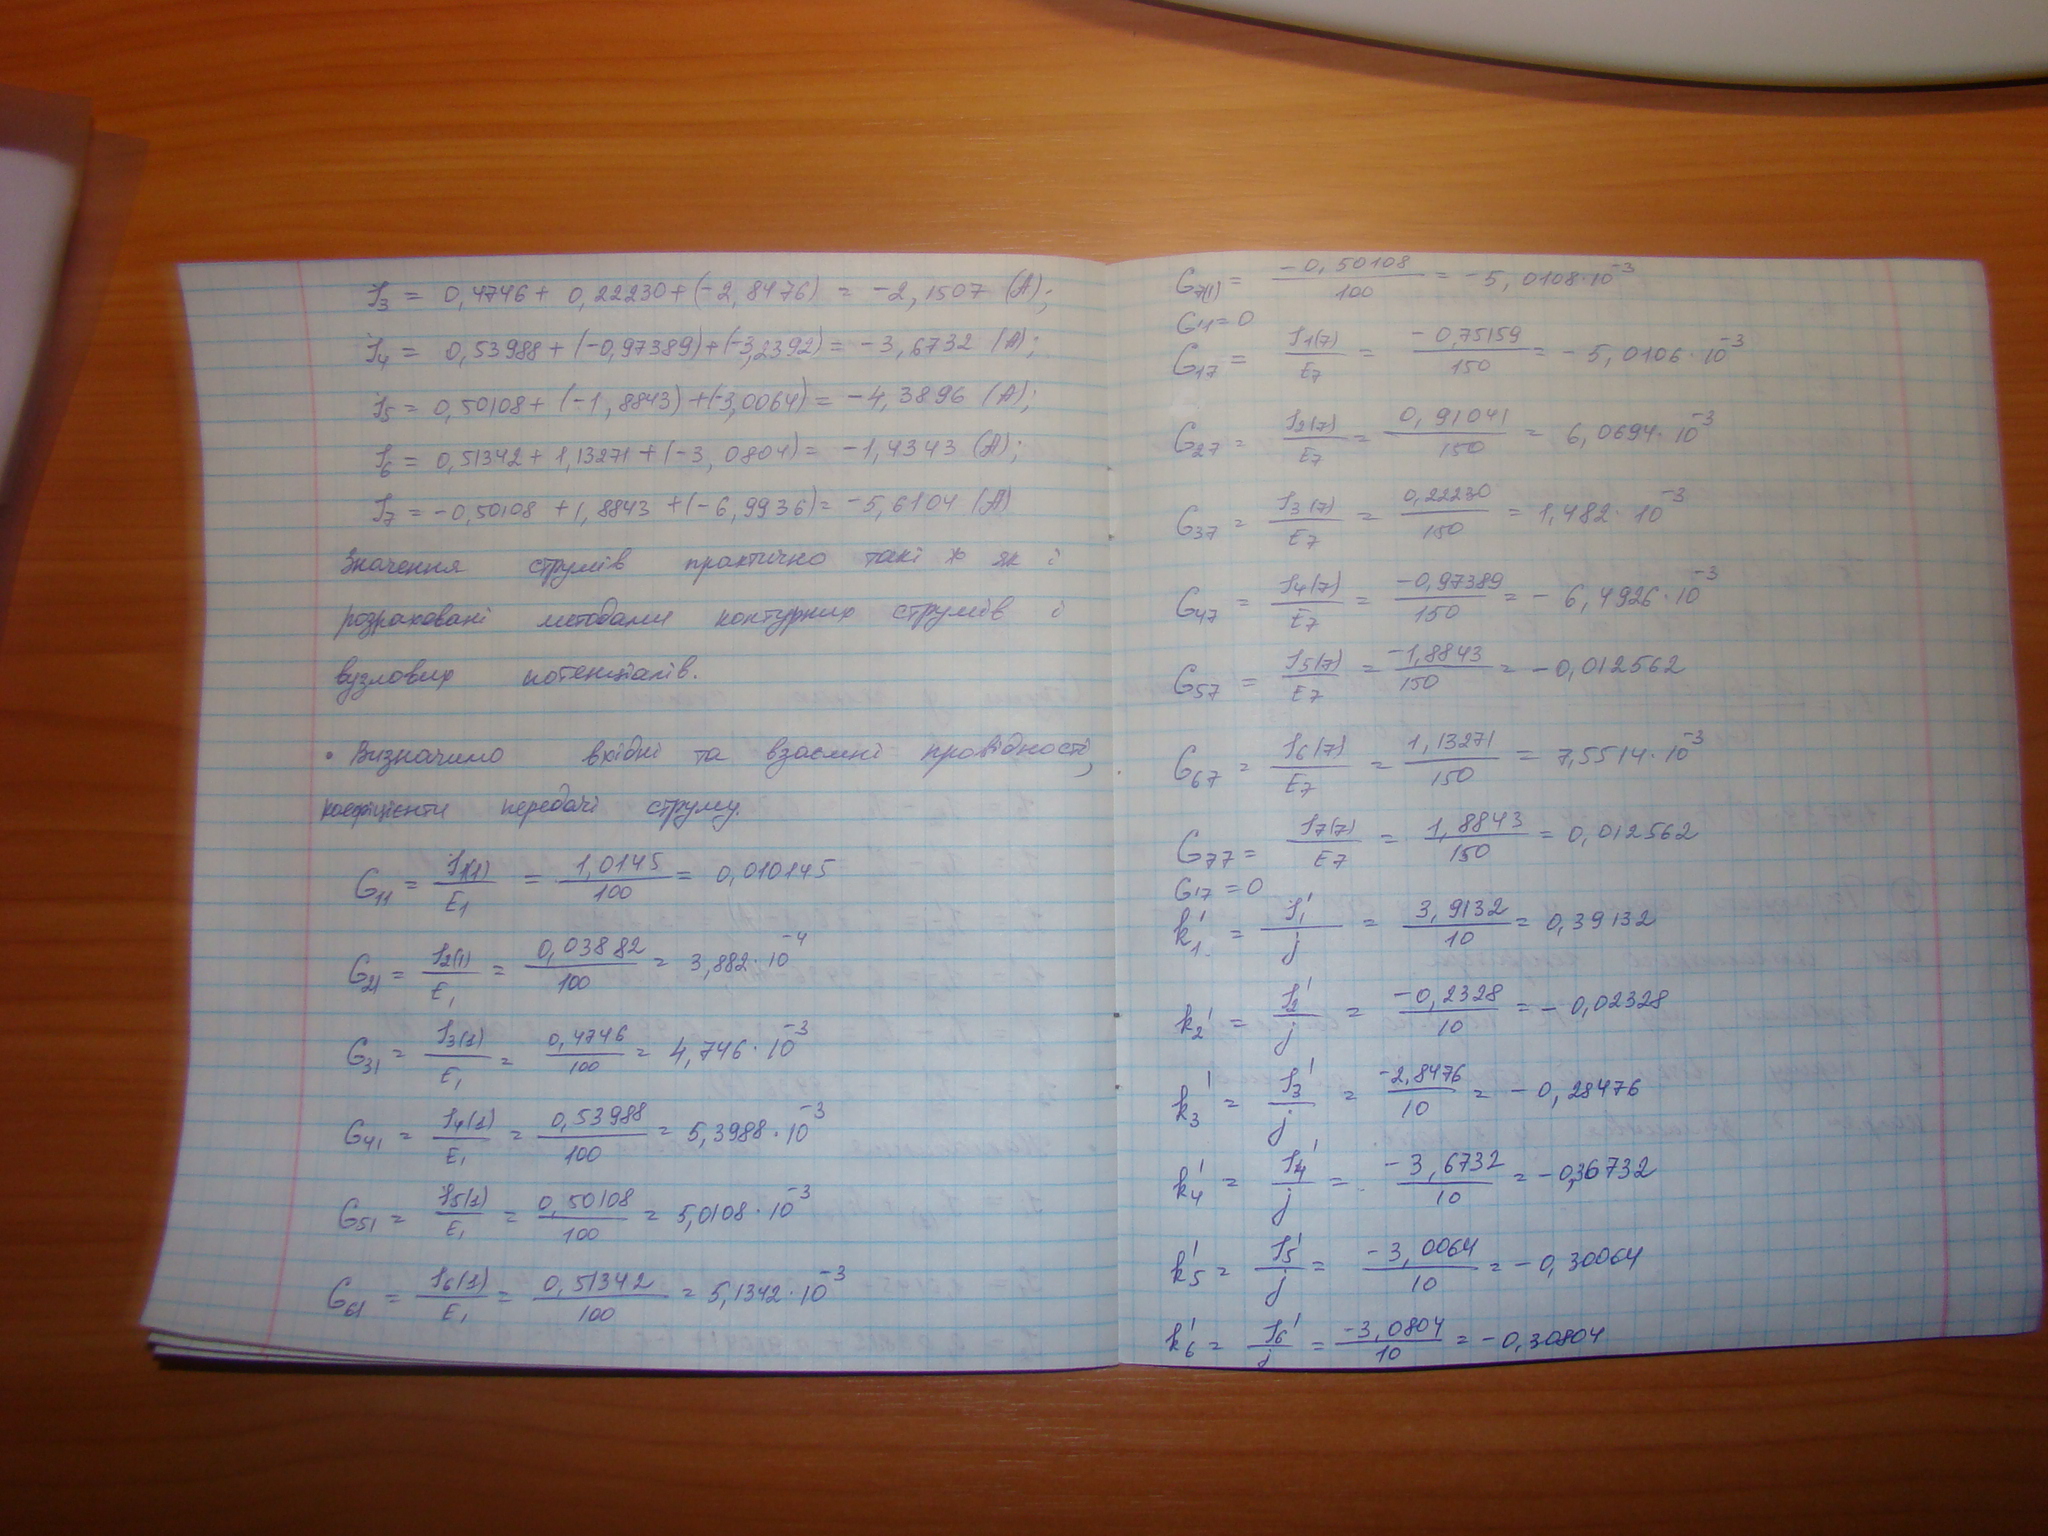 I₃ = 0,4746 + 0,22230 + (-2,8476) = -2,1507 (A);
I₄ = 0,53988 + (-0,97389) + (-3,2392) = -3,6732 (A);
I₅ = 0,50108 + (-1,8843) + (-3,0064) = -4,3896 (A);
I₆ = 0,51342 + 1,13271 + (-3,0804) = -1,4343 (A);
I₇ = -0,50108 + 1,8843 + (-6,9936) = -5,6104 (A)
Значення струмів практично такі ж як і
розраховані методами контурних струмів і
вузлових потенціалів.
• Визначимо вхідні та взаємні провідності,
коефіцієнти передачі струму.
G₁₁ = I₁(1)/E₁ = 1,0145/100 = 0,010145
G₂₁ = I₂(1)/E₁ = 0,03882/100 = 3,882·10⁻⁴
G₃₁ = I₃(1)/E₁ = 0,4746/100 = 4,746·10⁻³
G₄₁ = I₄(1)/E₁ = 0,53988/100 = 5,3988·10⁻³
G₅₁ = I₅(1)/E₁ = 0,50108/100 = 5,0108·10⁻³
G₆₁ = I₆(1)/E₁ = 0,51342/100 = 5,1342·10⁻³
G₇(1) = -0,50108/100 = -5,0108·10⁻³
G₁₇ = I₁(7)/E₇ = -0,75159/150 = -5,0106·10⁻³
G₂₇ = I₂(7)/E₇ = 0,91041/150 = 6,0694·10⁻³
G₃₇ = I₃(7)/E₇ = 0,22230/150 = 1,482·10⁻³
G₄₇ = I₄(7)/E₇ = -0,97389/150 = -6,4926·10⁻³
G₅₇ = I₅(7)/E₇ = -1,8843/150 = -0,012562
G₆₇ = I₆(7)/E₇ = 1,13271/150 = 7,5514·10⁻³
G₇₇ = I₇(7)/E₇ = 1,8843/150 = 0,012562
G₁₇ = 0
k₁' = I₁'/j = 3,9132/10 = 0,39132
k₂' = I₂'/j = -0,2328/10 = -0,02328
k₃' = I₃'/j = -2,8476/10 = -0,28476
k₄' = I₄'/j = -3,6732/10 = -0,36732
k₅' = I₅'/j = -3,0064/10 = -0,30064
k₆' = I₆'/j = -3,0804/10 = -0,30804